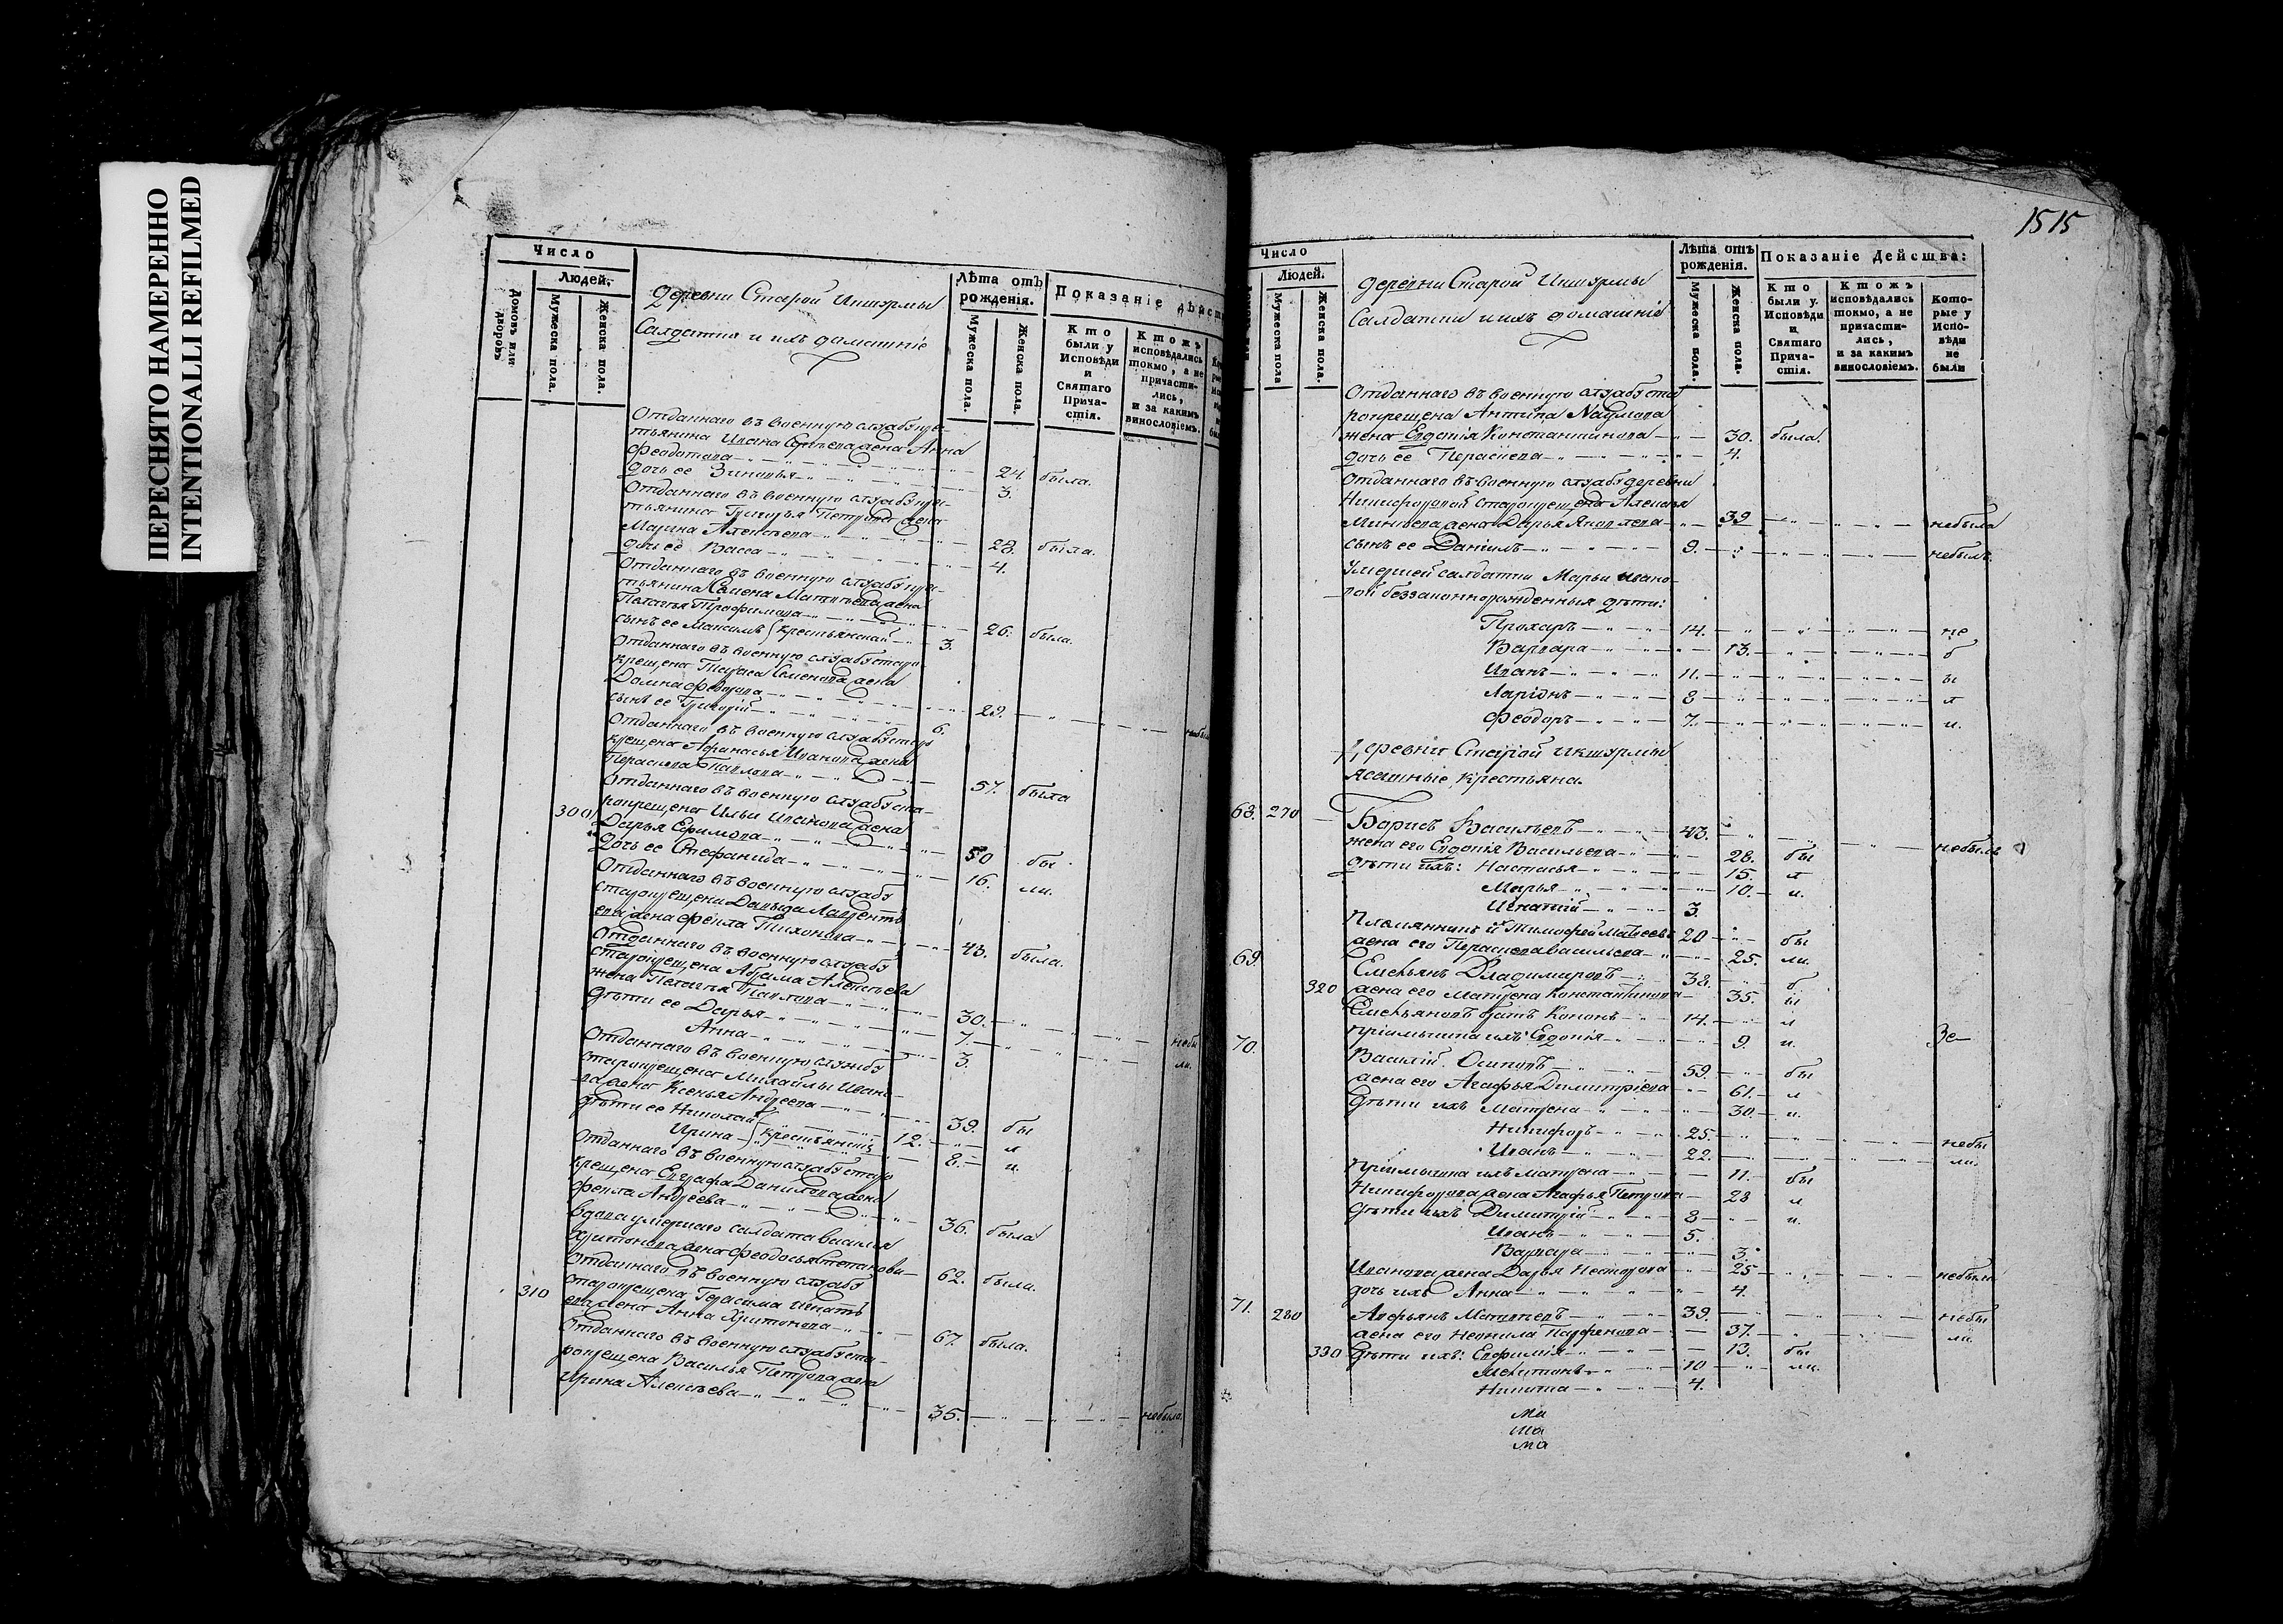 ПЕРЕСНЯТО НАМЕРЕННО
INTENTIONALLI REFILMED
Число
Людей.
Домовъ или дворовъ
Мужеска пола.
Женска пола.
деревни Старой Икшурмы
Салдатки и ихъ домашніе
Лѣта отъ рожденія.
Мужеска пола.
Женска пола.
Показаніе дѣйст
Кто были у Исповѣди и Святаго Причастія.
Ктожъ исповѣдались токмо, а не причастились, и за какимъ винословіемъ.
Отданнаго въ военную службу кре-
стьянина Ивана жена Анна
Федотова 24. была.
дочь ее Зиновья 3.
Отданнаго въ военную службу кре-
стьянина Григорья Петрова жена
Марина Алексѣева 28. была.
дочь ее Васса 4.
Отданнаго въ военную службу кре-
стьянина Семена Матвѣева жена
Пелагья Трофимова 26. была.
сынъ ее Максимъ крестьянской 3.
Отданнаго въ военную службу старо
крещена Тараса Семенова жена
Домна Федорова 29. небыла
сынъ ее Григорій 6.
Отданнаго въ военную службу старо
крещена Афанасья Иванова жена
Парасковья Павлова 57. была
Отданнаго въ военную службу ста-
рокрещена Ильи Иванова жена
300 Дарья Ефимова 50 бы
дочь ее Стефанида 16. ли.
Отданнаго въ военную службу
старокрещена Давыда Лаврентье
ва жена Фекла Тихонова 43. была.
Отданнаго въ военную службу
старокрещена Абрама Алексѣева
жена Пелагья Павлова 30. небы
дѣти ее Дарья 7. ли.
Анна 3.
Отданнаго въ военную службу
старокрещена Михайлы Ивано-
ва жена Ксенья Андреева 39. бы
дѣти ее Николай 12. л
Ирина крестьянскія 8. и.
Отданнаго въ военную службу старо
крещена Евграфа Данилова жена
Фекла Андреева 36. была
вдова умершаго салдата Василья
Харитонова жена Феодосья Степанова 62. была.
Отданнаго въ военную службу
старокрещена Герасима Игнать
310 ева жена Анна Харитонова 67. была.
Отданнаго въ военную службу ста-
рокрещена Василья Петрова жена
Ирина Алексѣева 35. небыла.
1515
Число
Людей.
Мужеска пола
Женска пола.
деревни Старой Икшурмы
Салдатки и ихъ домашніе
Лѣта отъ рожденія.
Мужеска пола.
Женска пола.
Показаніе Дейсшва:
Кто были у Исповѣди и Святаго Причастія.
Ктожъ исповѣдались токмо, а не причастились, и за какимъ винословіемъ.
Которые у Исповѣди не были
Отданнаго въ военную службу ста
рокрещена Антипа Наумова
жена Евдокія Константинова 30. была.
дочь ее Парасковья 4.
Отданнаго въ военную службу деревни
Никифоровой старокрещена Алексѣя
жена Дарья Яковлева 39 небыла
сынъ ее Даніилъ 9. небылъ.
Умершей салдатки Марьи Ивано-
вой беззаконнорожденныя дѣти:
Прохоръ 14. не
Варвара 13. б
Иванъ 11. ы
Ларіонъ 8 л
Феодоръ 7. и.
Деревни Старой Икшурмы
ясашные крестьяна.
68. 270 Борисъ Васильевъ 43. небылъ
жена его Евдокія Васильева 28. бы
дѣти ихъ: Настасья 15. л
Марья 10. и.
Игнатій 3.
Племянникъ и Тимофей Матвеевъ 20 бы
жена его Парасковья Васильева 25. ли.
69. Емельянъ Владимировъ 38. б
320 жена его Матрена Константинова 35. ы
Емельяновъ братъ Кононъ 14. л
пріемышна ихъ Евдокія 9. и.
Зе
70. Василій Осиповъ 59. бы
жена его Агафья Димитріева 61. л
дѣти ихъ Матрена 30. и.
Никифоръ 25. небы
Иванъ 22. ли.
Пріемышна ихъ Матрена 11. бы
Никифорова жена Агафья Петрова 28 л
дѣти ихъ Димитрій 8 и.
Иванъ 5.
Варвара 3.
Иванова жена Дарья Несторова 25 небыла
дочь ихъ Анна 4.
71. 280 Алферьянъ Матвѣевъ 39. небы
жена его Неонила Парфенова 37. ли.
330 дѣти ихъ: Евфимія 13. бы
Мелитонъ 10 ли.
Никита 4.
Ма
Ша
Ма